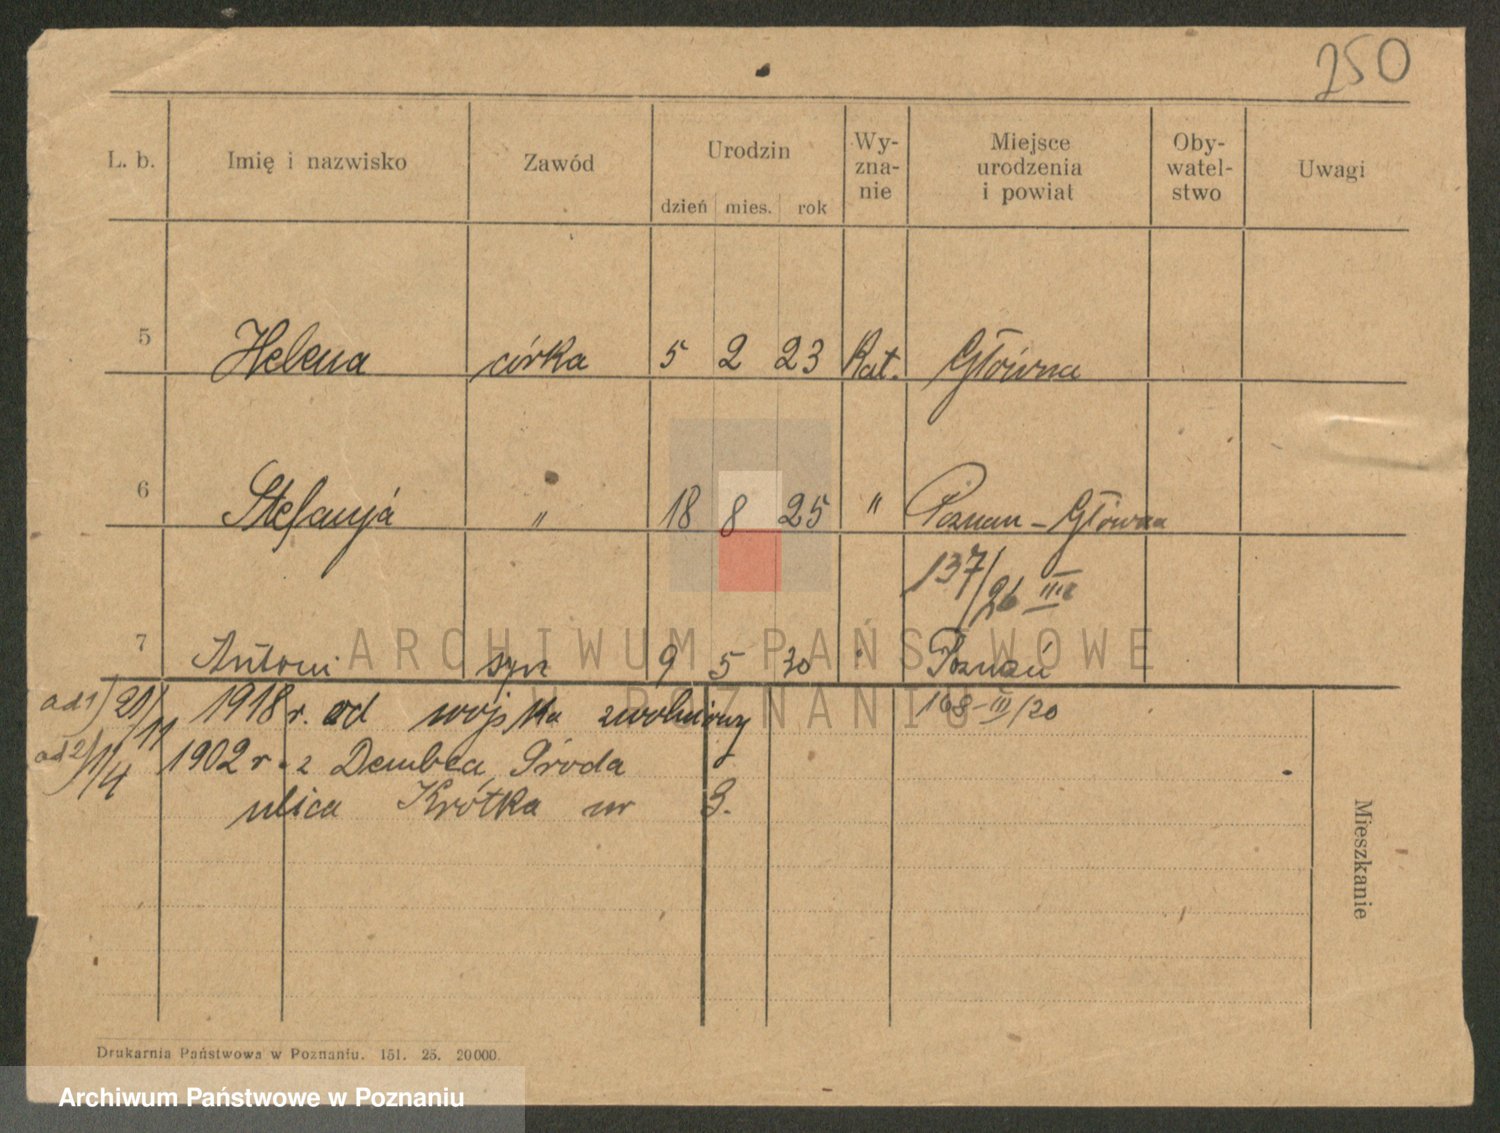 250
L. b. Imię i nazwisko Zawód Urodzin dzień mies. rok Wy-zna-nie Miejsce urodzenia i powiat Oby-watel-stwo Uwagi
5 Helena córka 5 2 23 Kat. Główna
6 Stefanja " 18 8 25 " Poznan - Główna
137/26 III
7 Antoni syn 9 5 30 Poznań
ARCHIWUM PAŃSTWOWE
W POZNANIU
ad 1) 20/11 1918 r. od wojska zwolniony 168-III/20
ad 2) 1/4 1902 r. z Dembca, Środa
ulica Krótka nr 3.
Mieszkanie
Drukarnia Państwowa w Poznaniu. 151. 25. 20000.
Archiwum Państwowe w Poznaniu